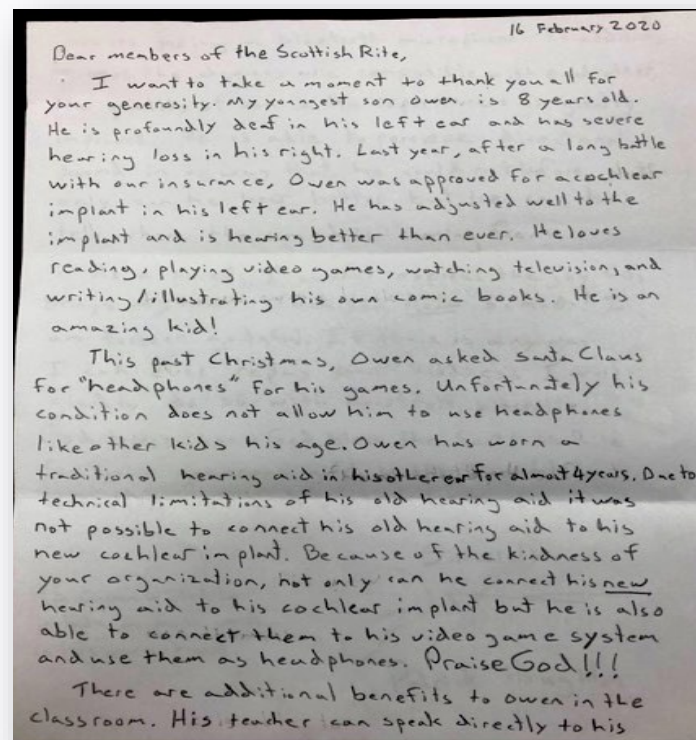 16 February 2020
Dear members of the Scottish Rite,
I want to take a moment to thank you all for
your generosity. My youngest son Owen is 8 years old.
He is profoundly deaf in his left ear and has severe
hearing loss in his right. Last year, after a long battle
with our insurance, Owen was approved for a cochlear
implant in his left ear. He has adjusted well to the
implant and is hearing better than ever. He loves
reading, playing video games, watching television, and
writing/illustrating his own comic books. He is an
amazing kid!
This past Christmas, Owen asked Santa Claus
for "headphones" for his games. Unfortunately his
condition does not allow him to use headphones
like other kids his age. Owen has worn a
traditional hearing aid in his other ear for almost 4 years. Due to
technical limitations of his old hearing aid it was
not possible to connect his old hearing aid to his
new cochlear implant. Because of the kindness of
your organization, not only can he connect his new
hearing aid to his cochlear implant but he is also
able to connect them to his video game system
and use them as headphones. Praise God!!!
There are additional benefits to Owen in the
classroom. His teacher can speak directly to his